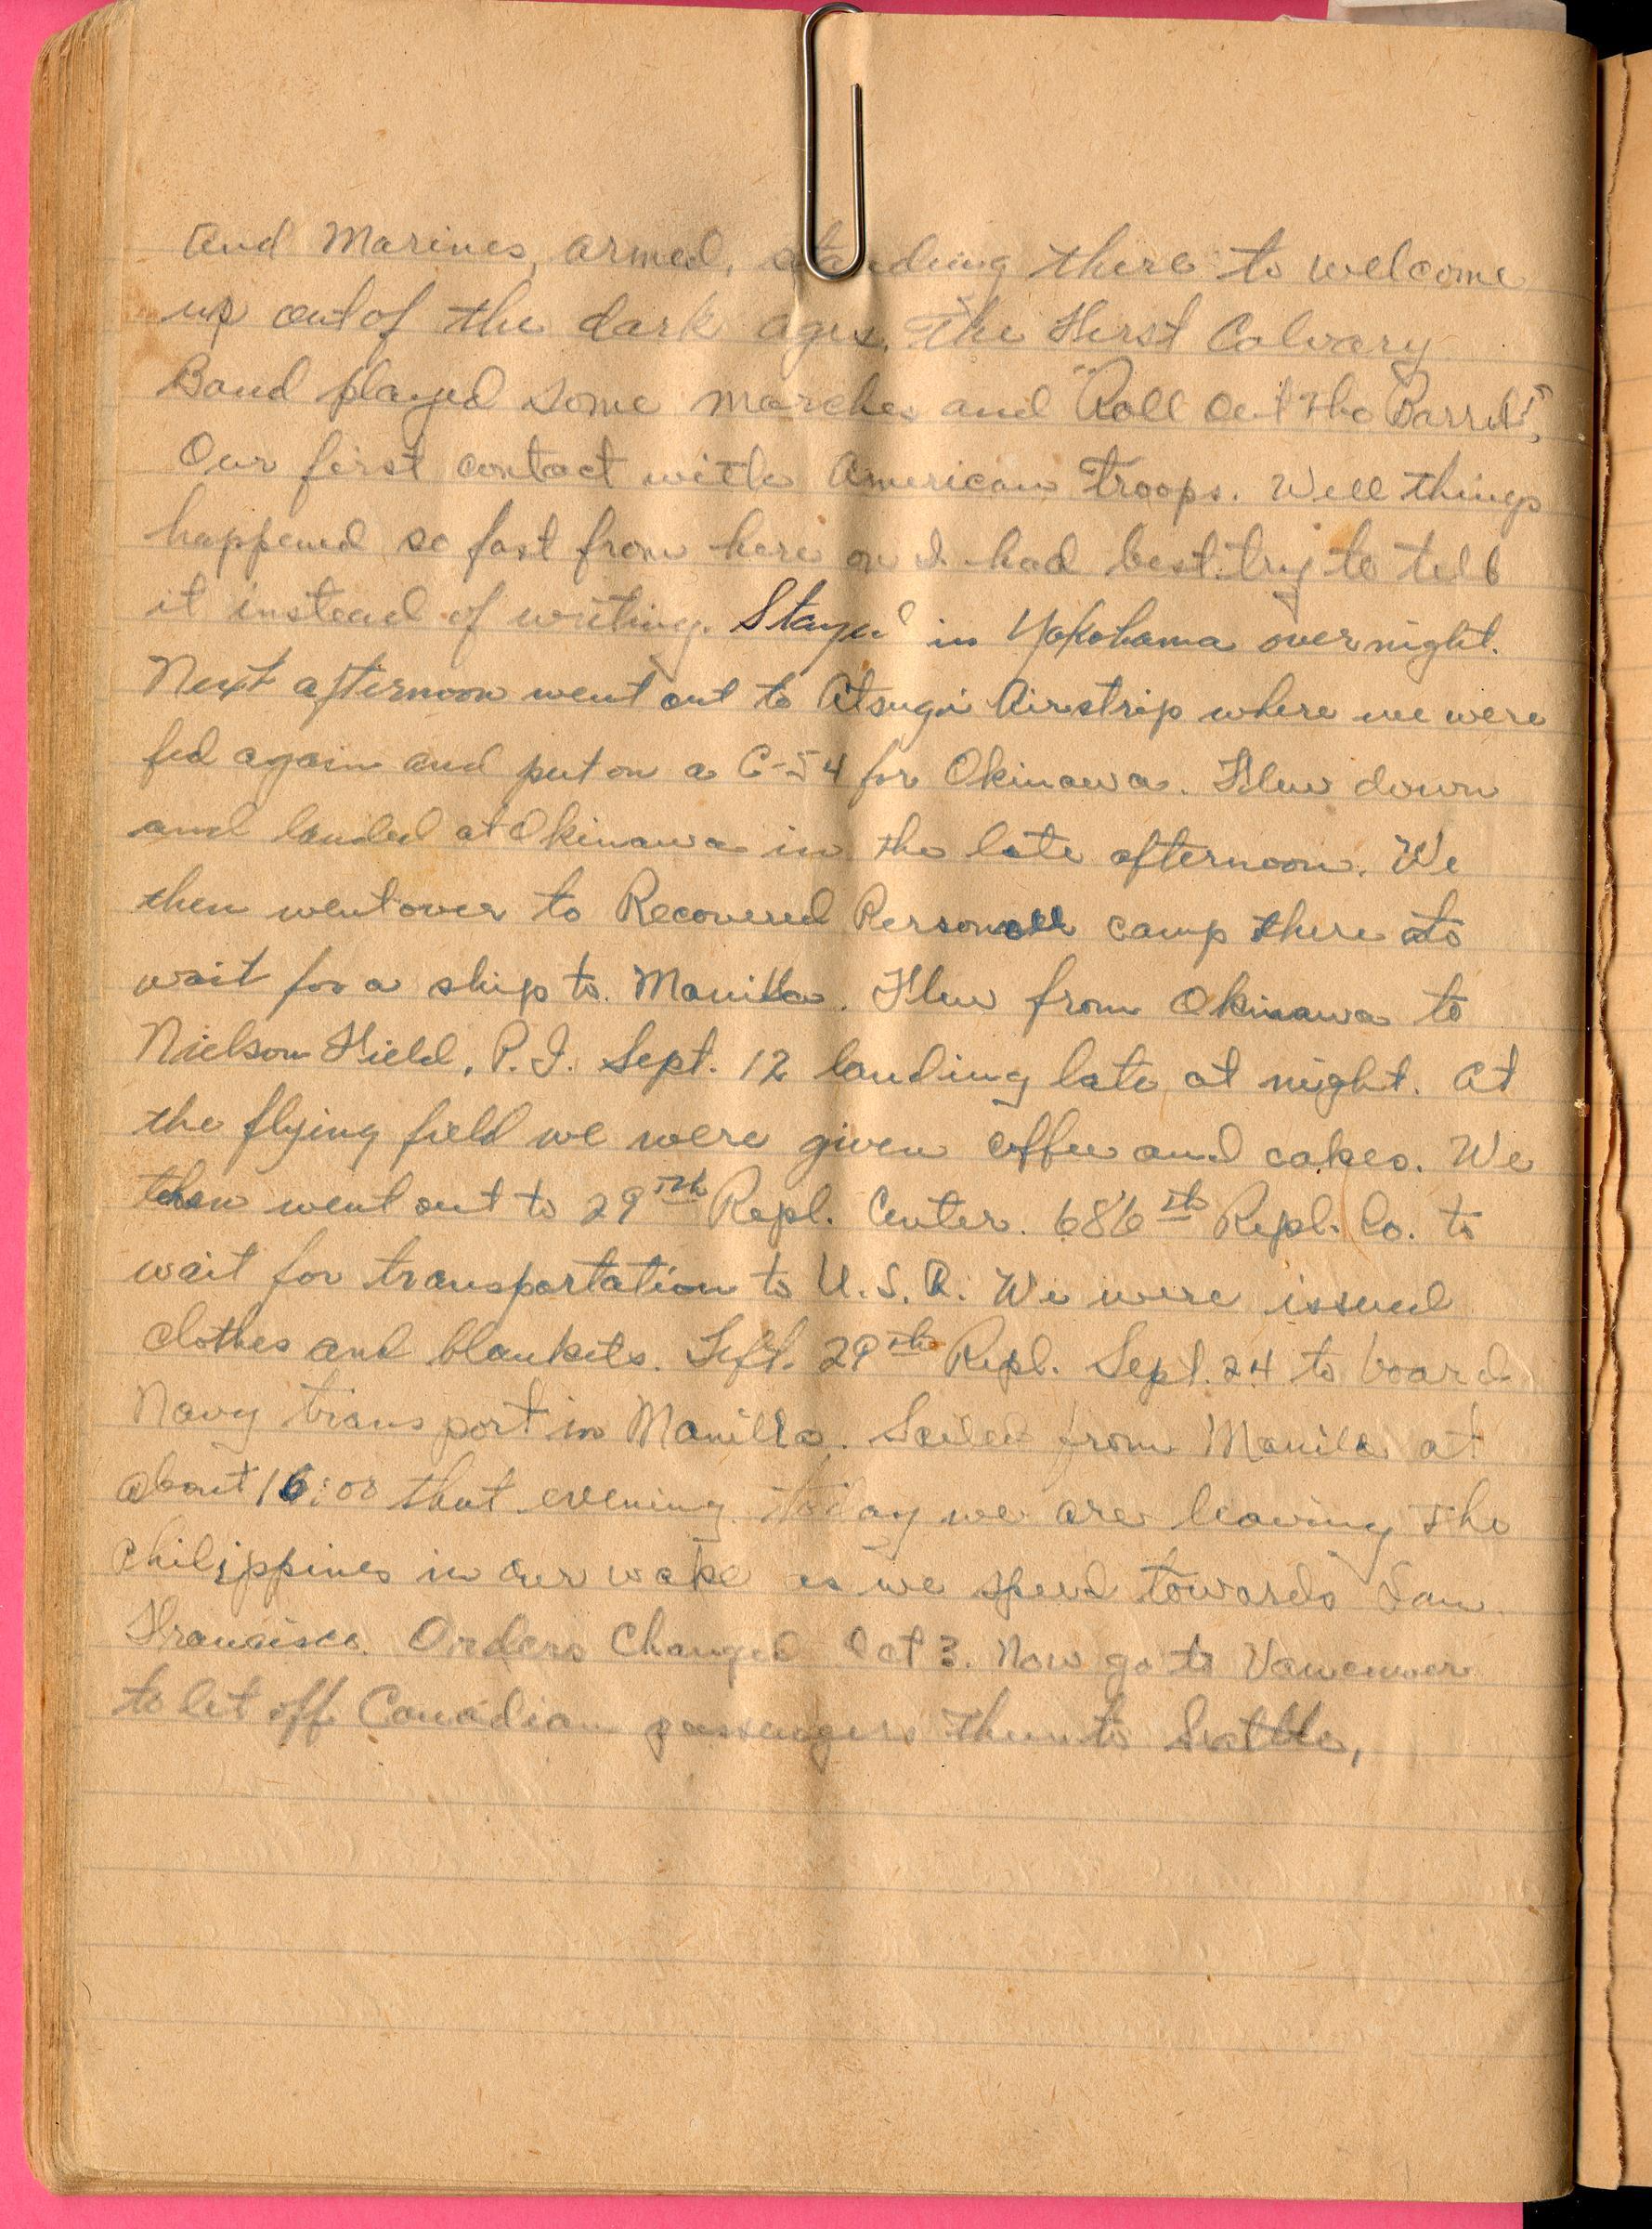 and Marines, armed, standing there to welcome
us out of the dark ages. The First Calvary
Band played some marches and "Roll Out The Barrel".
Our first contact with American Troops. Well things
happened so fast from here on I had best try to tell
it instead of writing. Stayed in Yokohama overnight.
Next afternoon went out to Atsugi Airstrip where we were
fed again and put on a C-54 for Okinawa. Flew down
and landed at Okinawa in the late afternoon. We
then went over to Recovered Personell camp there to
wait for a ship to Manilla. Flew from Okinawa to
Nielson Field, P.I. Sept. 12 landing late at night. At
the flying field we were given coffee and cakes. We
then went out to 29th Repl. Center. 686th Repl. Co. to
wait for transportation to U.S.A. We were issued
clothes and blankets. Left 29th Repl. Sept. 24 to board
Navy transport in Manilla. Sailed from Manila at
about 16:00 that evening. Today we are leaving the
Philippines in our wake as we speed towards San
Francisco. Orders Changed Oct 3. Now go to Vancouver
to let off Canadian passengers then to Seattle,